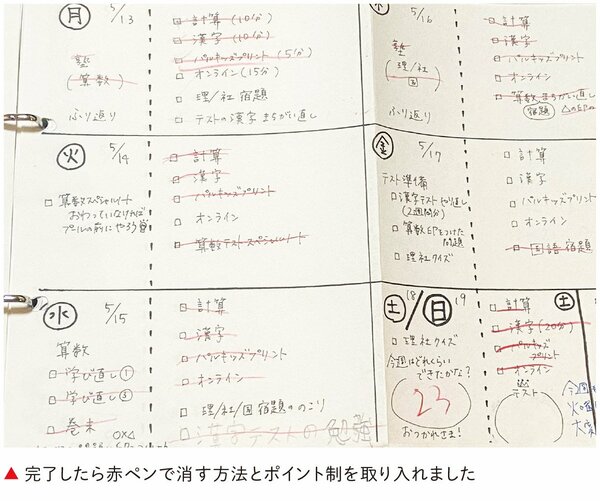 月
5/13
塾
(算数)
ふり返り
□ 計算(10分)
□ 漢字(10分)
□ パルキッズプリント(5分)
□ オンライン(15分)
□ 理/社 宿題
□ テストの漢字まちがい直し
火
5/14
□ 算数スペシャルシート
おわっていなければ
プールの前にやろう
□ 計算
□ 漢字
□ パルキッズプリント
□ オンライン
□ 算数テストスペシャルシート
水
5/15
算数
□ 学び直し①
□ 学び直し③
□ 巻末
○×△
□ 計算
□ 漢字
□ パルキッズプリント
□ オンライン
□ 理/社/国 宿題ののこり
□ 漢字テストの勉強
木
5/16
塾
(理/社
国)
ふり返り
□ 計算
□ 漢字
□ パルキッズプリント
□ オンライン
□ 算数まちがい直し
宿題
金
5/17
テスト準備
□ 漢字テストやり直し
(2週間分)
□ 算数 印をつけた
問題
□ 理社クイズ
□ 計算
□ 漢字
□ パルキッズプリント
□ オンライン
□ 国語宿題
土/日
18
19
□ 理社クイズ
今週はどれくらい
できたかな?
23
おつかれさま!
□ 計算
□ 漢字(20分)
□ パルキッズ
プリント
□ オンライン
土
テスト
今週
火曜
▲ 完了したら赤ペンで消す方法とポイント制を取り入れました